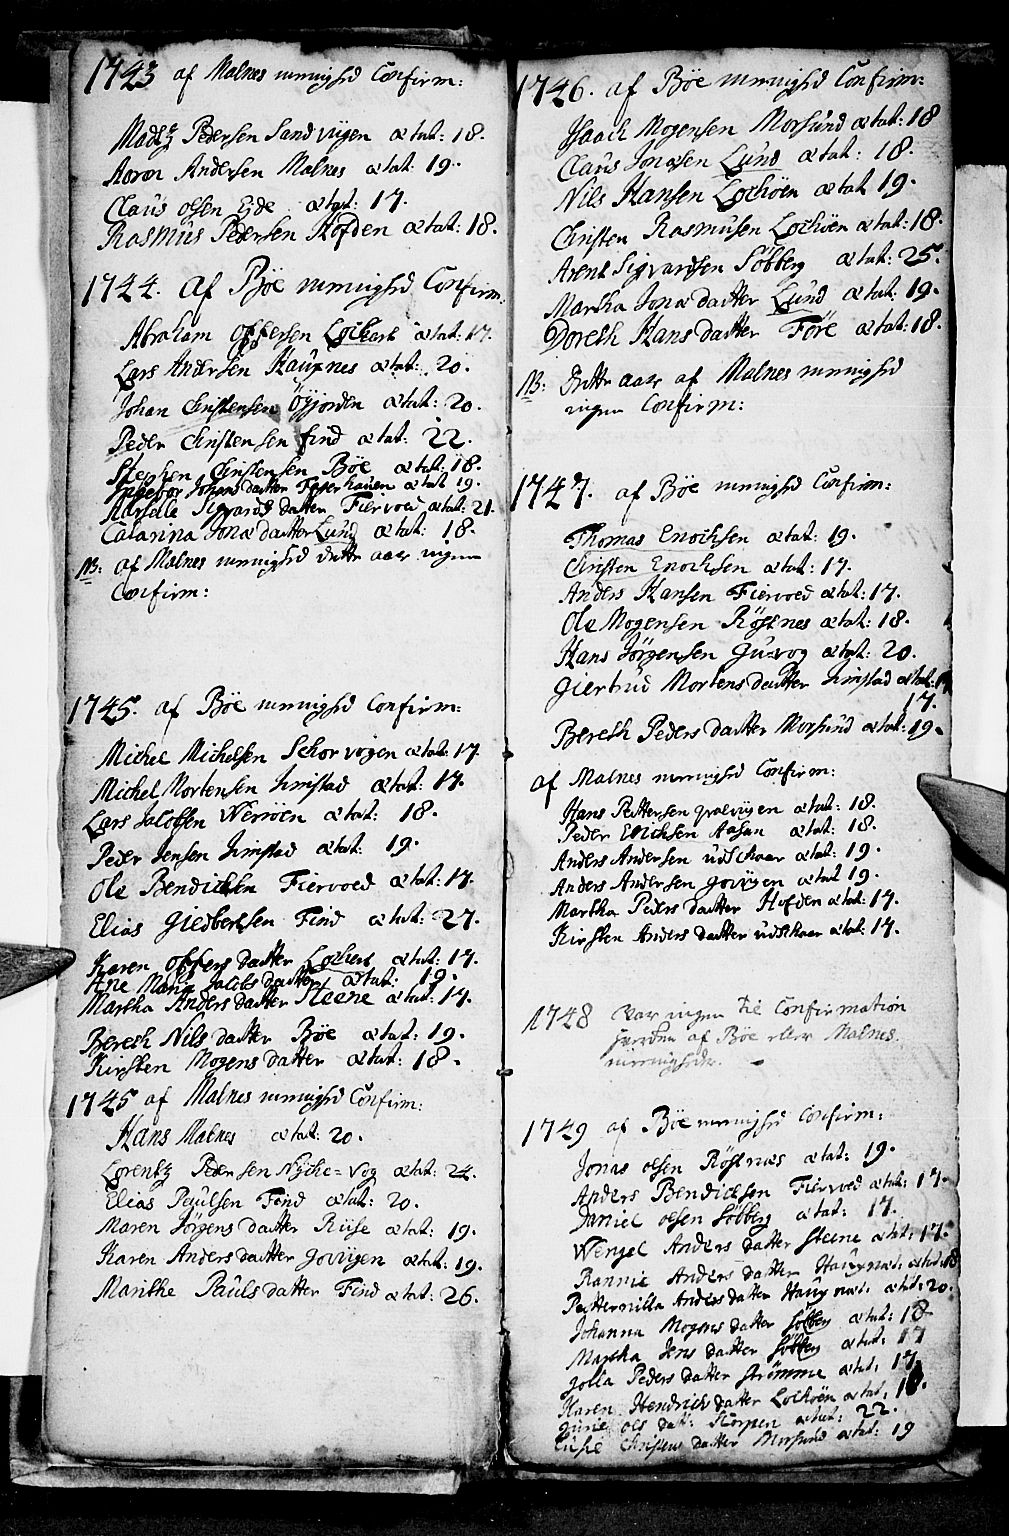 1743 af Malnes menighed Confirm:
Madtz Pedersen Sandviigen ætat: 18.
Aaron Andersen Malnes ætat: 19.
Claus olsen Eide ætat: 17.
Rasmus Pedersen Hofden ætat: 18.
1744. Af Böe menighed Confirm:
Abraham Offersen Lochert ætat: 17.
Lars Andersen Hauxnes ætat: 20.
Johan Christensen Öyjorden ætat: 20.
Peder Christensen find ætat: 22.
Stephen Christensen Böe ætat: 18.
Ingebor Johansdatter ætat 19.
Sigvards datter Fiervoed ætat: 21.
Catarina Jonædaatter Lund ætat: 18.
NB: af Malnes menighed dette aar ingen
Confirm:
1745. af Böe menighed Confirm:
Michel Michelsen Schorvogen ætat: 17
Michel Mortensen Limstad ætat: 17.
Lars Jacobsen Weröen ætat: 18.
Peder Jensen Limstad ætat: 19.
Ole Bendichsen Fiervoed ætat: 17.
Elias Giedbertsen Find ætat: 27.
Karen Offers datter Lochert ætat: 17.
Ane Maria Jacobs daatter ætat: 19.
Martha Anders datter Steene ætat: 17.
Bereth Nils datter Böe ætat: 19.
Kirsten Mogens datter ætat: 18.
1745 af Malnes menighed Confirm:
Hans Malnes ætat: 20.
Lorentz Pedersen Nyche=vog ætat: 24.
Elias Paulsen Find ætat: 20.
Maren Jörgens datter Riise ætat: 19.
Karen Anders daatter Govigen ætat: 19.
Marithe Pauls datter Find ætat: 26.
1746. af Böe menighed Confirm:
Isaach Mogensen Morsund ætat: 18
Claus Jonasen Lund ætat: 18.
Nils Hansen Lochöen ætat 19.
Christen Rasmusen Lochöen ætat: 18.
Arent Sigvardsen Söbberg ætat: 25.
Martha Jonæ daatter Lund ætat: 19.
Doreth Hans datter Före ætat: 18.
NB: Dette aar af Malnes menighed
ingen Confirm:
1747. af Böe menighed Confirm:
Thomas Enochsen ætat: 19.
Christen Enochsen ætat: 17.
Anders Hansen Fiervoed ætat: 17.
Ole Mogensen Röstnes ætat: 18.
Hans Jörgensen Guvog ætat: 20.
Giertrud Mortens daatter Limstad ætat:
17.
Bereth Peders datter Morsund ætat: 19.
af Malnes menighed Confirm:
Hans Pettersen ætat: 18.
Peder Erichsen Aasan ætat: 18.
Anders Andersen udschaar ætat: 19.
Anders Andersen goviigen ætat 19.
Martha Peders daatter Hofden ætat: 17.
Kirsten Anders datter udschaar ætat: 17.
1748 Var ingen til Confirmation
af Böe eller Malnes
menigheder.
1749 af Böe menighed Confirm:
Jonas olsen Röstnæs ætat: 19.
Anders Bendichsen Fiervoed ætat: 17.
Daniel olsen Söbberg ætat: 17.
Wengel Anders datter Steene ætat: 17.
Rannie Anders datter Hauxnæs ætat: 18
Petternilla Anders datter Hauxnæs ætat: 20.
Johanna Mogens datter Söbberg ætat: 18
Martha Jens datter Söbberg ætat: 17
Golla Peders datter Strömme ætat: 17.
Karen Hendrich datter Lochöen ætat: 18.
Gurie ols dat: Skorpen ætat: 22.
Lucie Christens datter Morsund ætat: 19